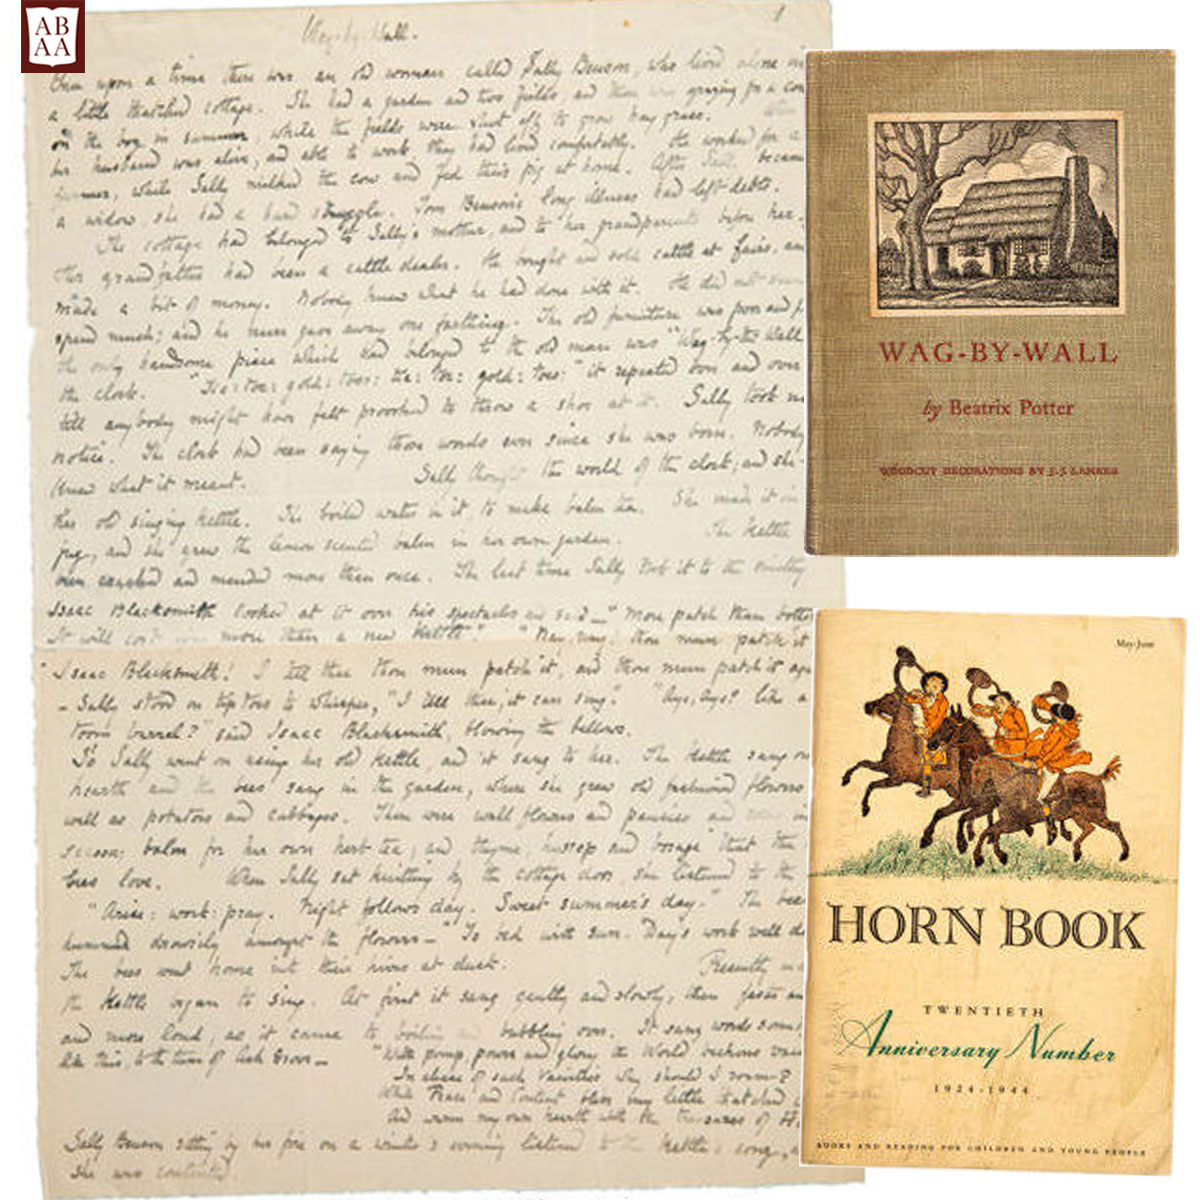 AB
AA
1
Wag-by-Wall.
Once upon a time there was an old woman called Sally Benson, who lived alone in
a little thatched cottage. She had a garden and two fields and there was grazing for a cow
on the bog in summer, while the fields were shut off to grow hay grass. When
her husband was alive, and able to work, they had lived comfortably. He worked for a
farmer, while Sally milked the cow and fed their pig at home. After Sally became
a widow, she had a hard struggle. Tom Benson's long illness had left debts.
The cottage had belonged to Sally's mother, and to her grandparents before her.
Her grandfather had been a cattle dealer. He bought and sold cattle at fairs, and
made a bit of money. Nobody knew what he had done with it. He did not
spend much; and he never gave away one farthing. The old furniture was poor and
the only handsome piece which had belonged to the old man was "Wag-by-the Wall
the clock. "Tic: toc: gold: toes: tic: toc: gold: toes:" it repeated over and over
till anybody might have felt provoked to throw a shoe at it. Sally took
notice. The clock had been saying those words ever since she was born. Nobody
knew what it meant. Sally thought the world of the clock; and she
her old singing kettle. She boiled water in it, to make balm tea. She made it in
jug, and she grew the lemon scented balm in her own garden. The kettle
been cracked and mended more than once. The last time Sally took it to the smithy
Isaac Blacksmith looked at it over his spectacles and said—"More patch than bottom
It will cost more than a new kettle." "Nay, nay, thou mun patch it
"Isaac Blacksmith! I tell thee thou mun patch it, and thou mun patch it
– Sally stood on tip toes to whisper, "I tell thee, it can sing." "Aye, Aye? like a
toom barrel?" said Isaac Blacksmith, blowing the bellows.
So Sally went on using her old kettle, and it sang to her. The kettle sang on
hearth and the bees sang in the garden, where she grew old fashioned flowers
well as potatoes and cabbages. There were wall flowers and pansies and in
season; balm for her own herb tea; and thyme, hyssop and borage that the
bees love. When Sally sat knitting by the cottage door, she listened to the
"Arise: work: pray. Night follows day. Sweet summer's day." The bees
hummed drowsily amongst the flowers—"To bed with sun. Day's work well
The bees went home into their hives at dusk. Presently
the kettle began to sing. At first it sang gently and slowly, then faster and
and more loud, as it came to boiling and bubbling over. It sang words
like this, to the tune of —
"Wild pomp, power and glory the World beckons
In chase of such Vanities why should I roam?
While Peace and Content bless my little thatched
And warm my own hearth with the treasures of
Sally Benson sitting by her fire on a winter's evening listened to the kettle's song,
She was contented.
WAG-BY-WALL
by Beatrix Potter
WOODCUT DECORATIONS BY J.J. LANKES
May-June
HORN BOOK
TWENTIETH
Anniversary Number
1924-1944
BOOKS AND READING FOR CHILDREN AND YOUNG PEOPLE